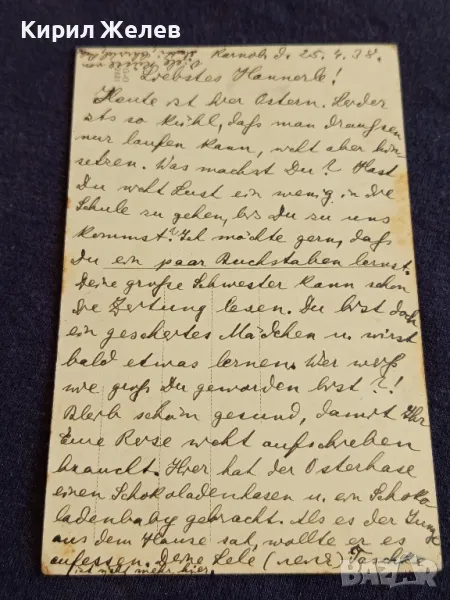 Кирил Желев
Viele Küsse
Karnobs d. 25.4.38.
Liebstes Hannerle!
Heute ist hier Ostern. Leider
ists so kühl, daß man draußen
nur laufen kann, nicht aber hin-
setzen. Was machst Du? Hast
Du wohl Lust ein wenig in die
Schule zu gehen, bis Du zu uns
kommst? Ich möchte gern, daß
Du ein paar Buchstaben lernst.
Deine große Schwester kann schon
die Zeitung lesen. Du bist doch
ein gescheites Mädchen u. wirst
bald etwas lernen. Wer weiß
wie groß Du geworden bist?!
Bleib schön gesund, damit Ihr
Eure Reise nicht aufschieben
braucht. Hier hat der Osterhase
einen Schokoladenhasen u. ein Schoko
ladenbaby gebracht. Als es der Junge
aus dem Hause sah, wollte er es
aufessen. Deine Lele (леля)
ist nicht mehr hier.
bazar.bg